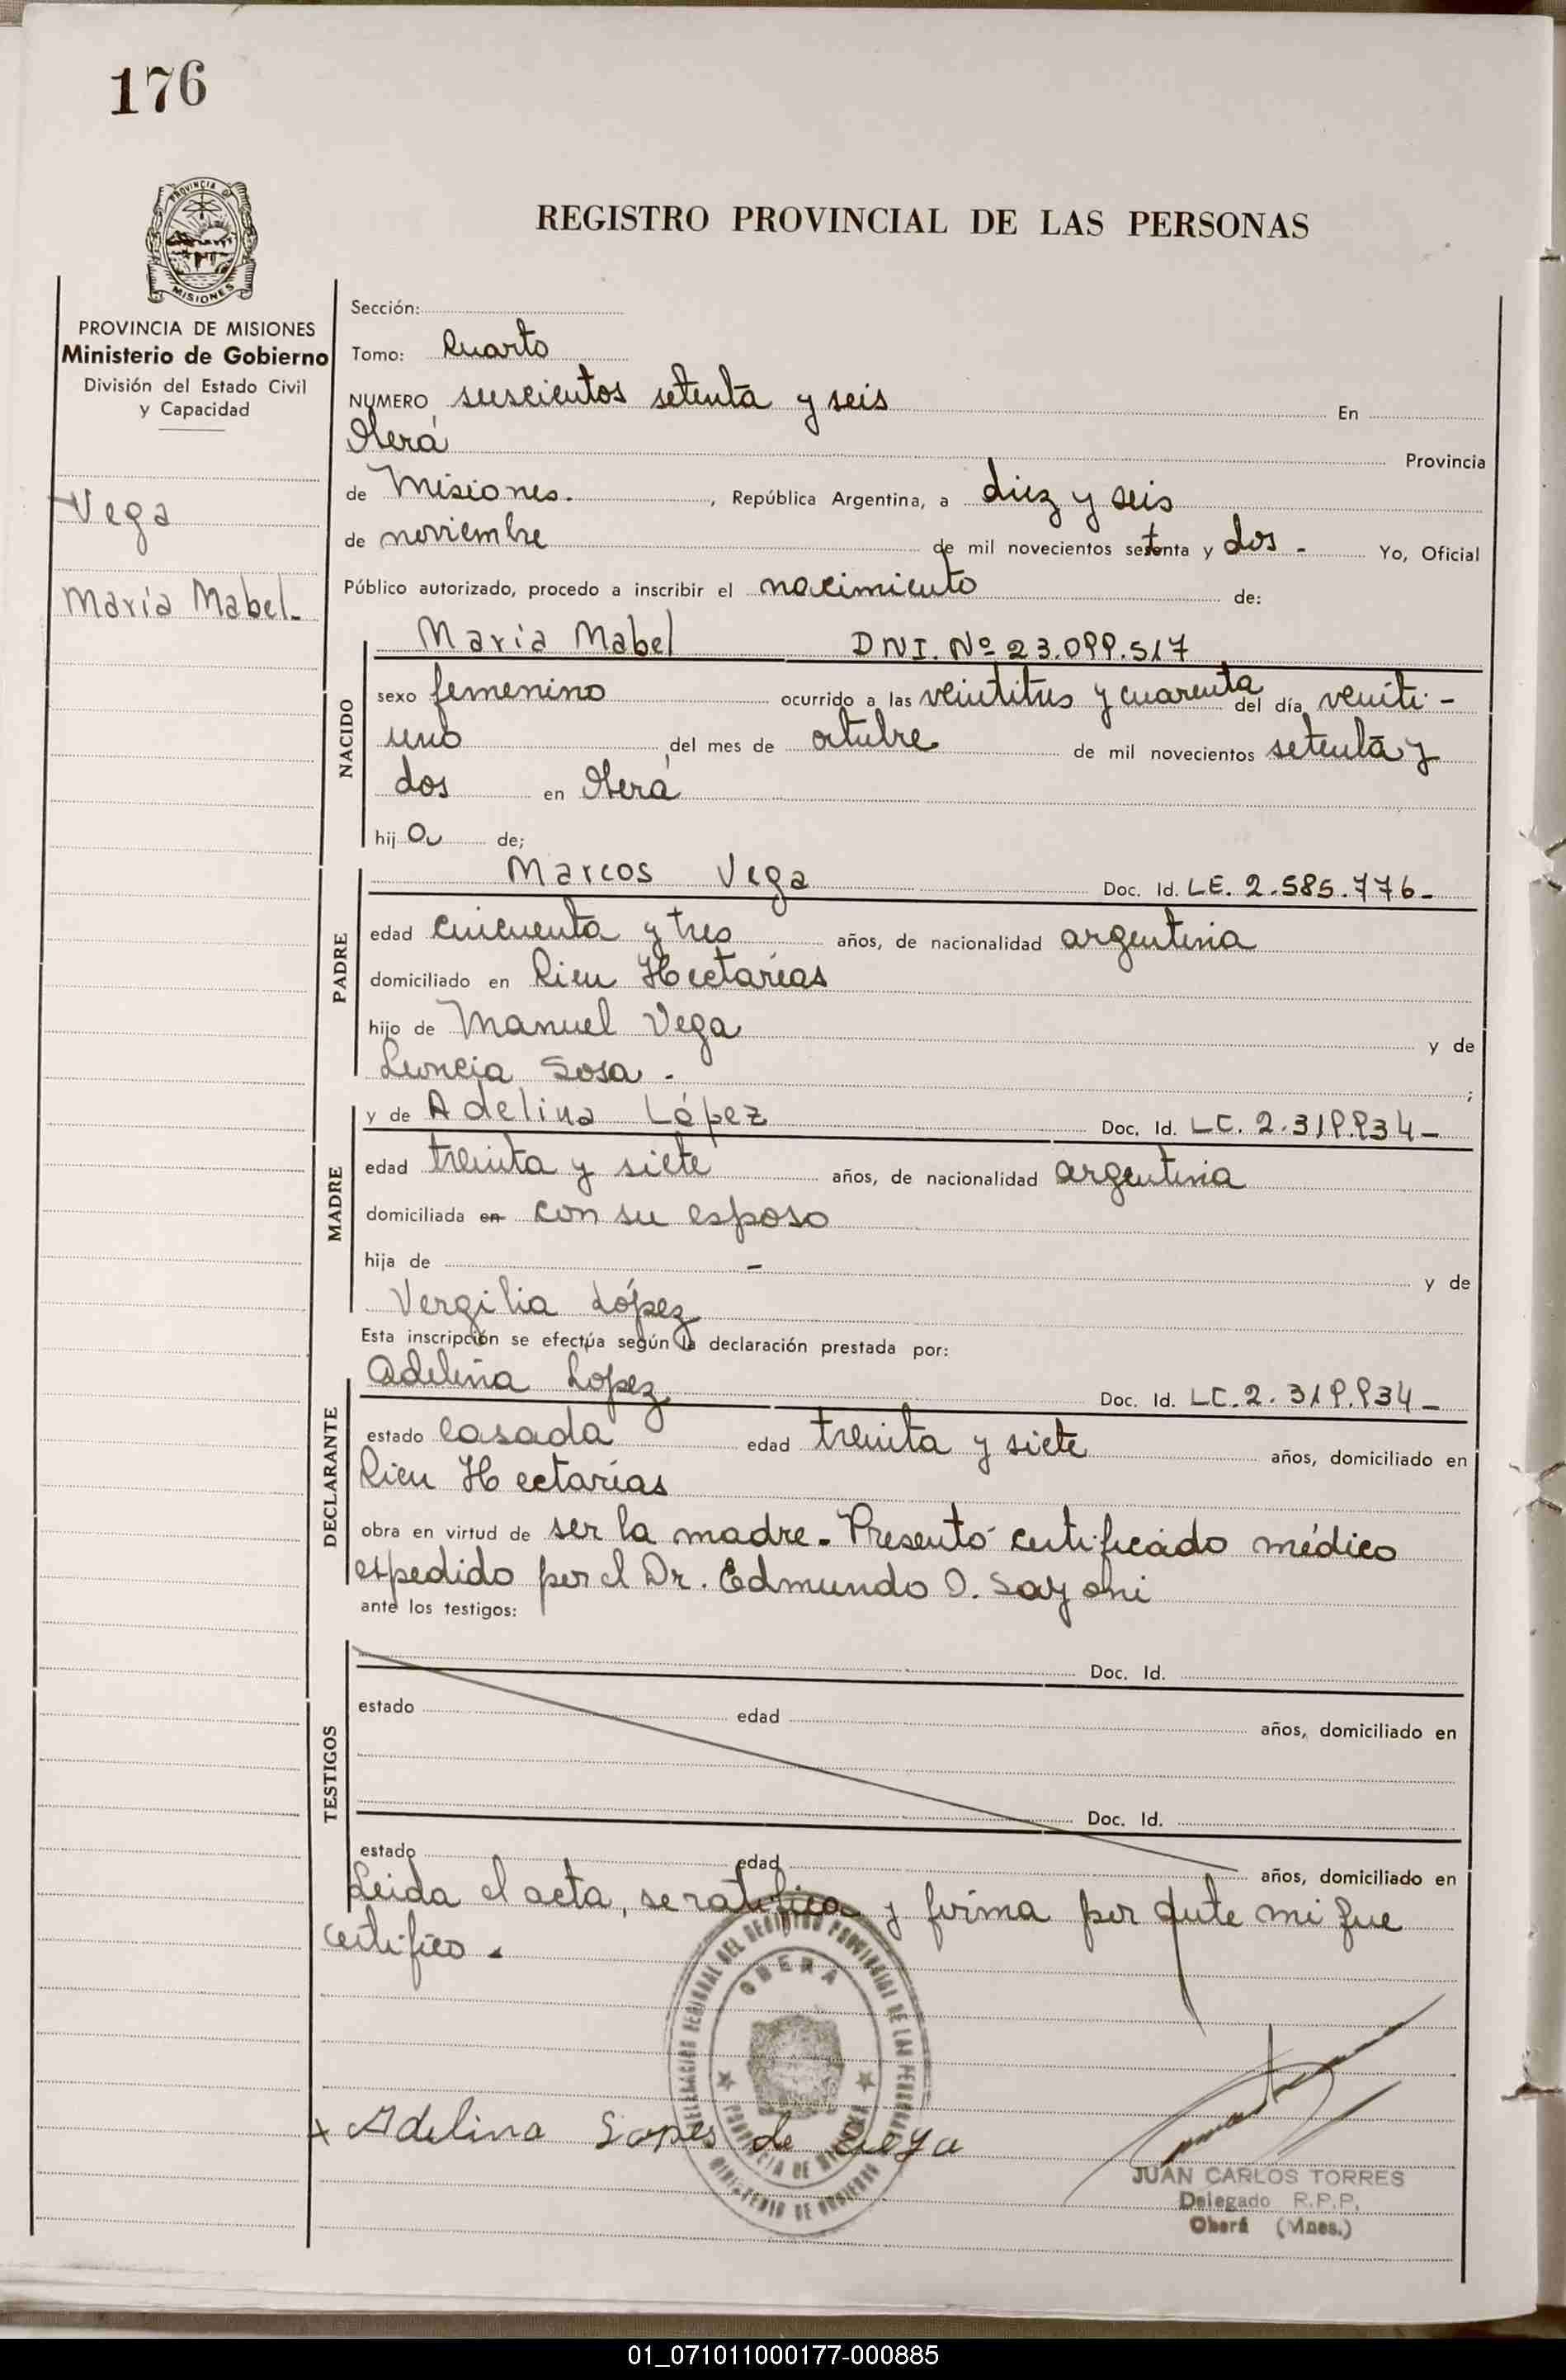 176
PROVINCIA DE
MISIONES
PROVINCIA DE MISIONES
Ministerio de Gobierno
División del Estado Civil
y Capacidad
Vega
María Mabel-
REGISTRO PROVINCIAL DE LAS PERSONAS
Sección:
Tomo: Cuarto
NUMERO seiscientos setenta y seis En
Oberá Provincia
de Misiones. , República Argentina, a diez y seis
de noviembre de mil novecientos setenta y dos - Yo, Oficial
Público autorizado, procedo a inscribir el nacimiento de:
María Mabel DNI. Nº 23.099.517
NACIDO
sexo femenino ocurrido a las veintitres y cuarenta del día veinti-
uno del mes de octubre de mil novecientos setenta y
dos en Oberá
hij a de;
PADRE
Marcos Vega Doc. Id. LE. 2.585.776-
edad cincuenta y tres años, de nacionalidad argentina
domiciliado en Cien Hectarías
hijo de Manuel Vega y de
Leoncia Sosa - ;
MADRE
y de Adelina López Doc. Id. LC. 2.319.934-
edad treinta y siete años, de nacionalidad argentina
domiciliada en con su esposo
hija de - y de
Vergilia López
Esta inscripción se efectúa según la declaración prestada por:
DECLARANTE
Adelina Lopez Doc. Id. LC. 2.319.934-
estado casada edad treinta y siete años, domiciliado en
Cien Hectarías
obra en virtud de ser la madre. Presentó certificado médico
espedido por el Dr. Edmundo O.
ante los testigos:
TESTIGOS
Doc. Id.
estado edad años, domiciliado en
Doc. Id.
estado edad años, domiciliado en
Leida el acta, se ratifica y firma por ante mi que
certifico.
DELEGACION REGIONAL DEL REGISTRO PROVINCIAL DE LAS PERSONAS
OBERA
PROVINCIA DE MISIONES
MINISTERIO DE GOBIERNO
x Adelina Lopes de Vega
JUAN CARLOS TORRES
Delegado R.P.P.
Oberá (Mnes.)
01_071011000177-000885